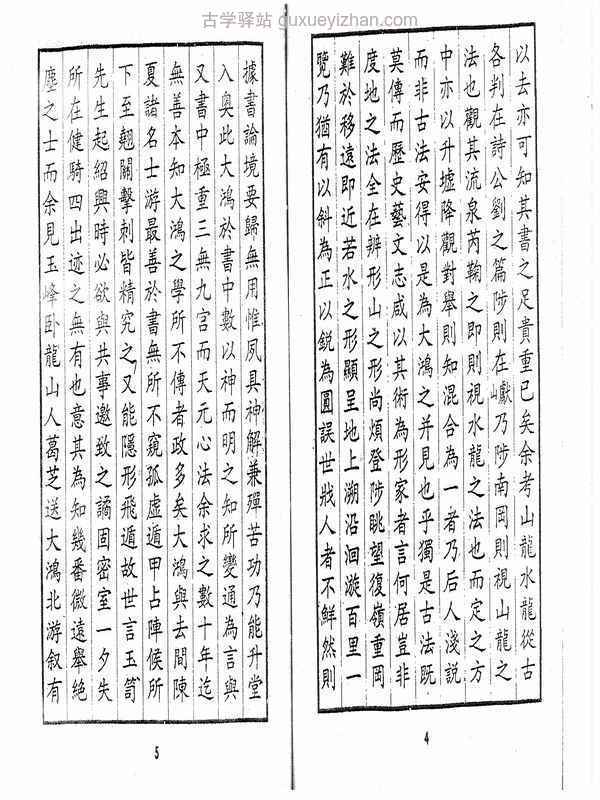 古学驿站 guxueyizhan.com
以去亦可知其書之足貴重已矣余考山龍水龍從古
各判在詩公劉之篇陟則在巘乃陟南岡則視山龍之
法也觀其流泉芮鞫之即則視水龍之法也而定之方
中亦以升墟降觀對舉則知混合為一者乃后人淺說
而非古法安得以是為大鴻之并見也乎獨是古法既
莫傳而歷史藝文志咸以其術為形家者言何居豈非
度地之法全在辨形山之形尚煩登陟眺望復嶺重岡
難於移遠即近若水之形顯呈地上溯沿洄漩百里一
覽乃猶有以斜為正以銳為圓誤世戕人者不鮮然則
4
據書論境要歸無用惟夙具神解兼殫苦功乃能升堂
入奥此大鴻於書中數以神而明之知所變通為言與
又書中極重三無九宮而天元心法余求之數十年迄
無善本知大鴻之學所不傳者政多矣大鴻與去間陳
夏諸名士游最善於書無所不窺孤虛遁甲占陣候所
下至翹關擊刺皆精究之又能隱形飛遁故世言玉笥
先生起紹興時必欲與共事邀致之譎固密室一夕失
所在健騎四出迹之無有也意其為知幾番微遠舉絕
塵之士而余見玉峰卧龍山人葛芝送大鴻北游叙有
5